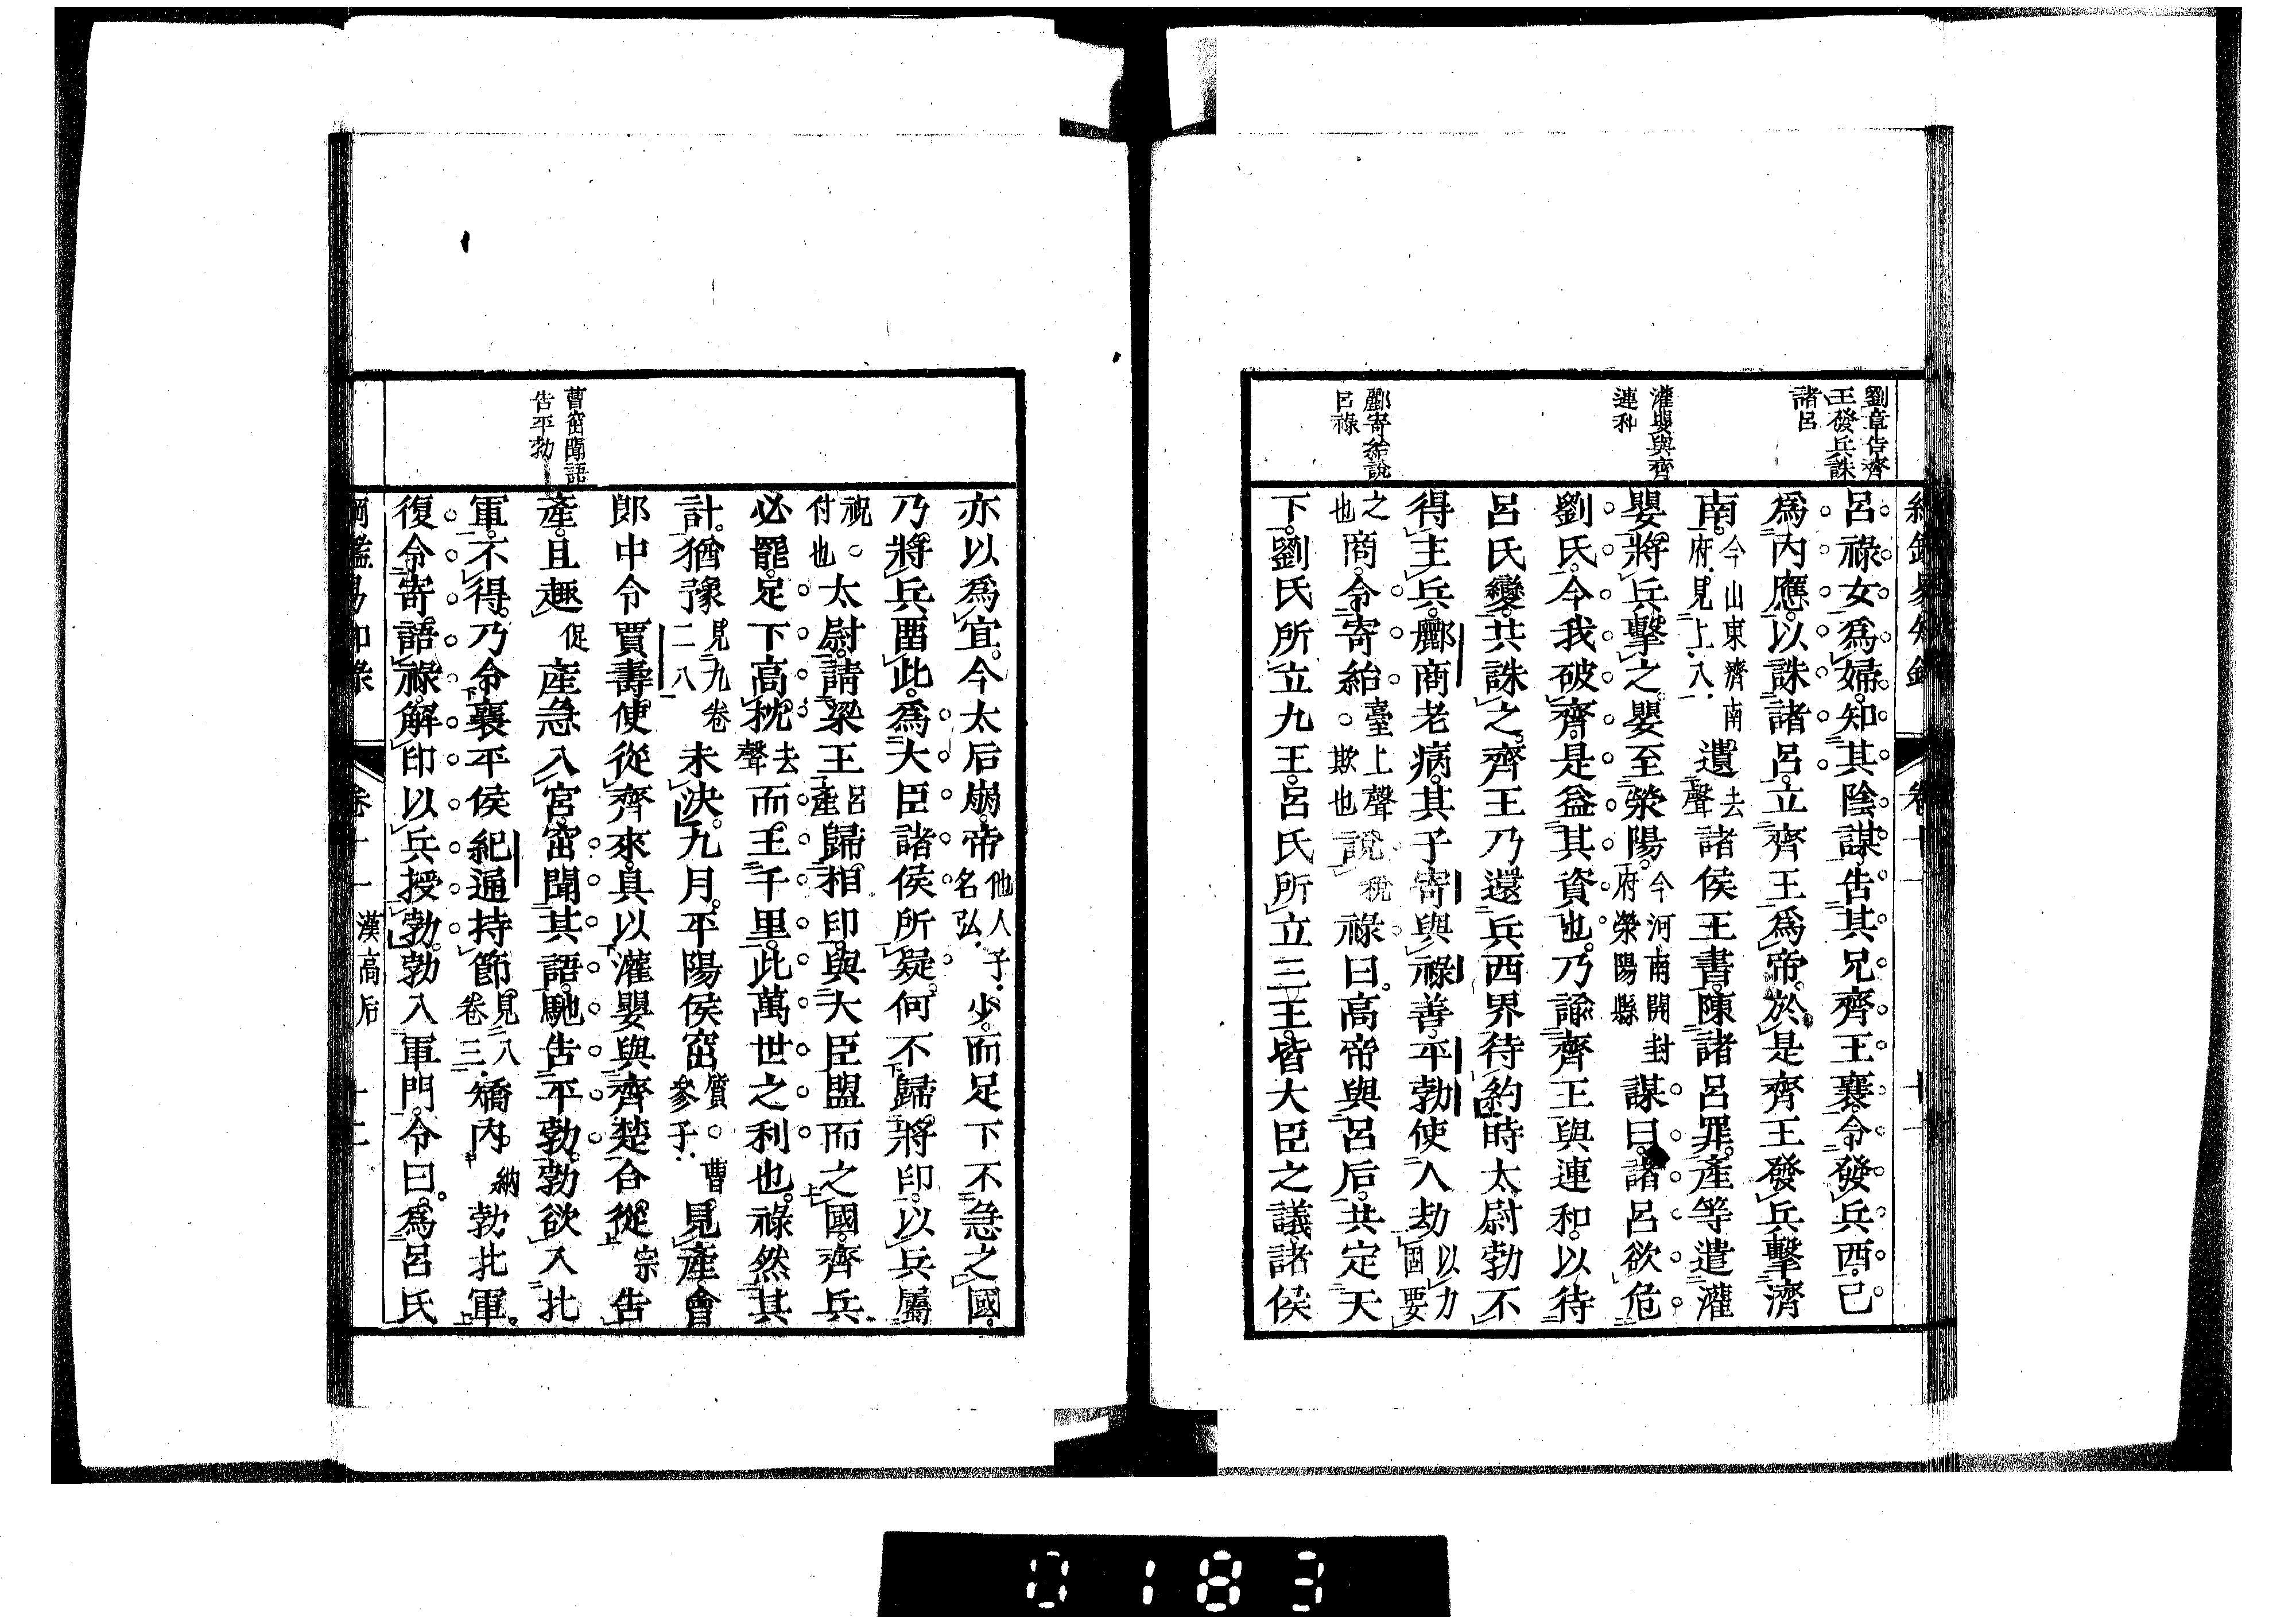 劉章告齊
王發兵誅
諸呂
灌嬰與齊
連和
酈寄紿說
呂祿
呂祿女爲婦。知其陰謀。告其兄齊王襄。令發兵西。己
爲內應。以誅諸呂。立齊王爲帝。於是齊王發兵擊濟
南。今山東濟南府。見上八一。遺去聲諸侯王書。陳諸呂罪。產等遣灌
嬰。將兵擊之。嬰至滎陽。今河南開封府滎陽縣謀曰。諸呂欲危
劉氏。今我破齊。是益其資也。乃諭齊王與連和。以待
呂氏變。共誅之。齊王乃還兵西界待約。時太尉勃不
得主兵。酈商老病。其子寄與祿善。平勃使人劫以力固要
之也商。令寄紿臺上聲。欺也說稅祿曰。高帝與呂后。共定天
下。劉氏所立九王。呂氏所立三王。皆大臣之議諸侯
亦以爲宜。今太后崩。帝他人子。名弘。少。而足下不急之國。
乃將兵畱此。爲大臣諸侯所疑。何不歸將印。以兵屬
祝。付也太尉。請梁王呂產歸相印。與大臣盟而之國。齊兵
必罷。足下高枕去聲而王千里。此萬世之利也。祿然其
計。猶豫見九卷二八未決。九月。平陽侯窋質。曹參子。見產會
郎中令賈壽使從齊來。具以灌嬰與齊楚合從宗告
產。且趣促產急入宮。窋聞其語。馳告平勃。勃欲入北
軍。不得。乃令襄平侯紀通持節。見八卷三。矯內。納勃北軍。
復令寄語祿。解印以兵授勃。勃入軍門。令曰。爲呂氏
曹窋聞語
告平勃
綱鑑易知錄 卷十一 漢高后 十二